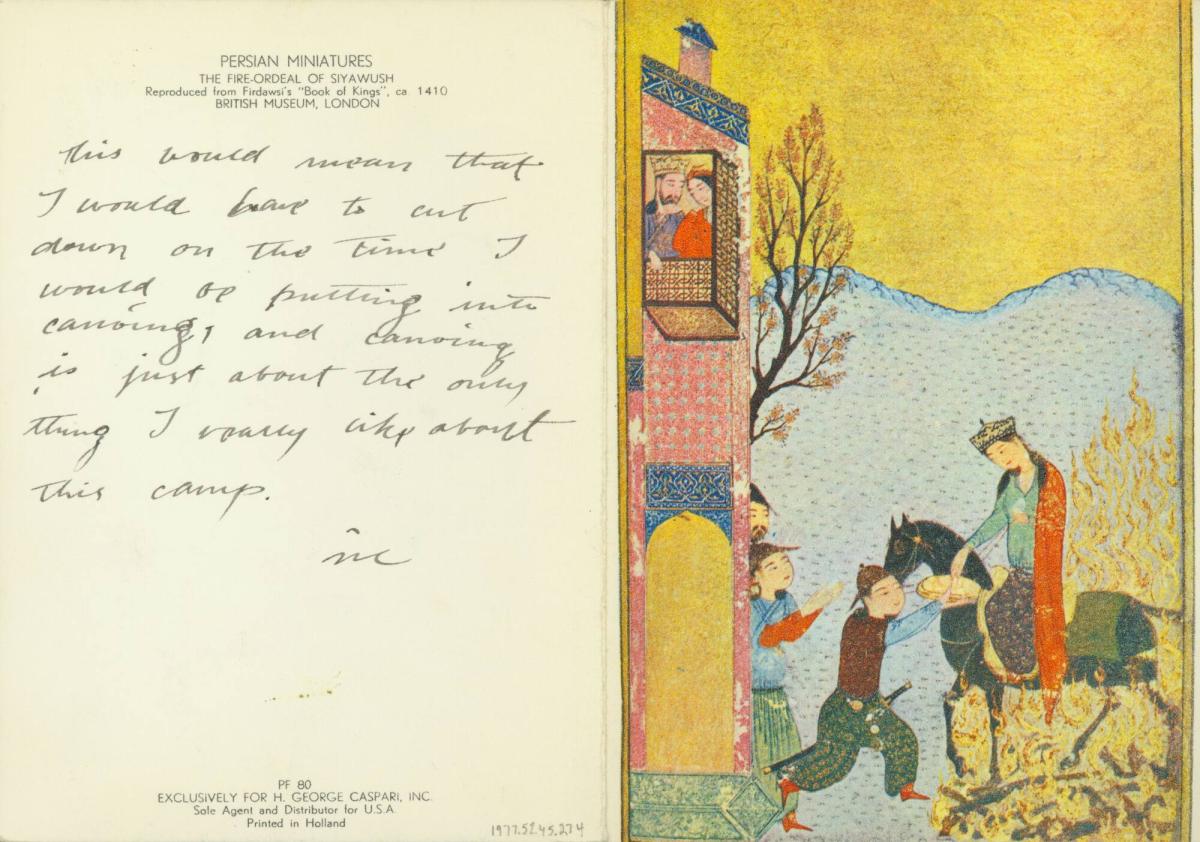 PERSIAN MINIATURES
THE FIRE-ORDEAL OF SIYAWUSH
Reproduced from Firdawsi's "Book of Kings", ca. 1410
BRITISH MUSEUM, LONDON
this would mean that
I would have to cut
down on the time I
would be putting into
canoing, and canoing
is just about the only
thing I really like about
this camp.
PF 80
EXCLUSIVELY FOR H. GEORGE CASPARI, INC.
Sole Agent and Distributor for U.S.A.
Printed in Holland
1977.5245.274